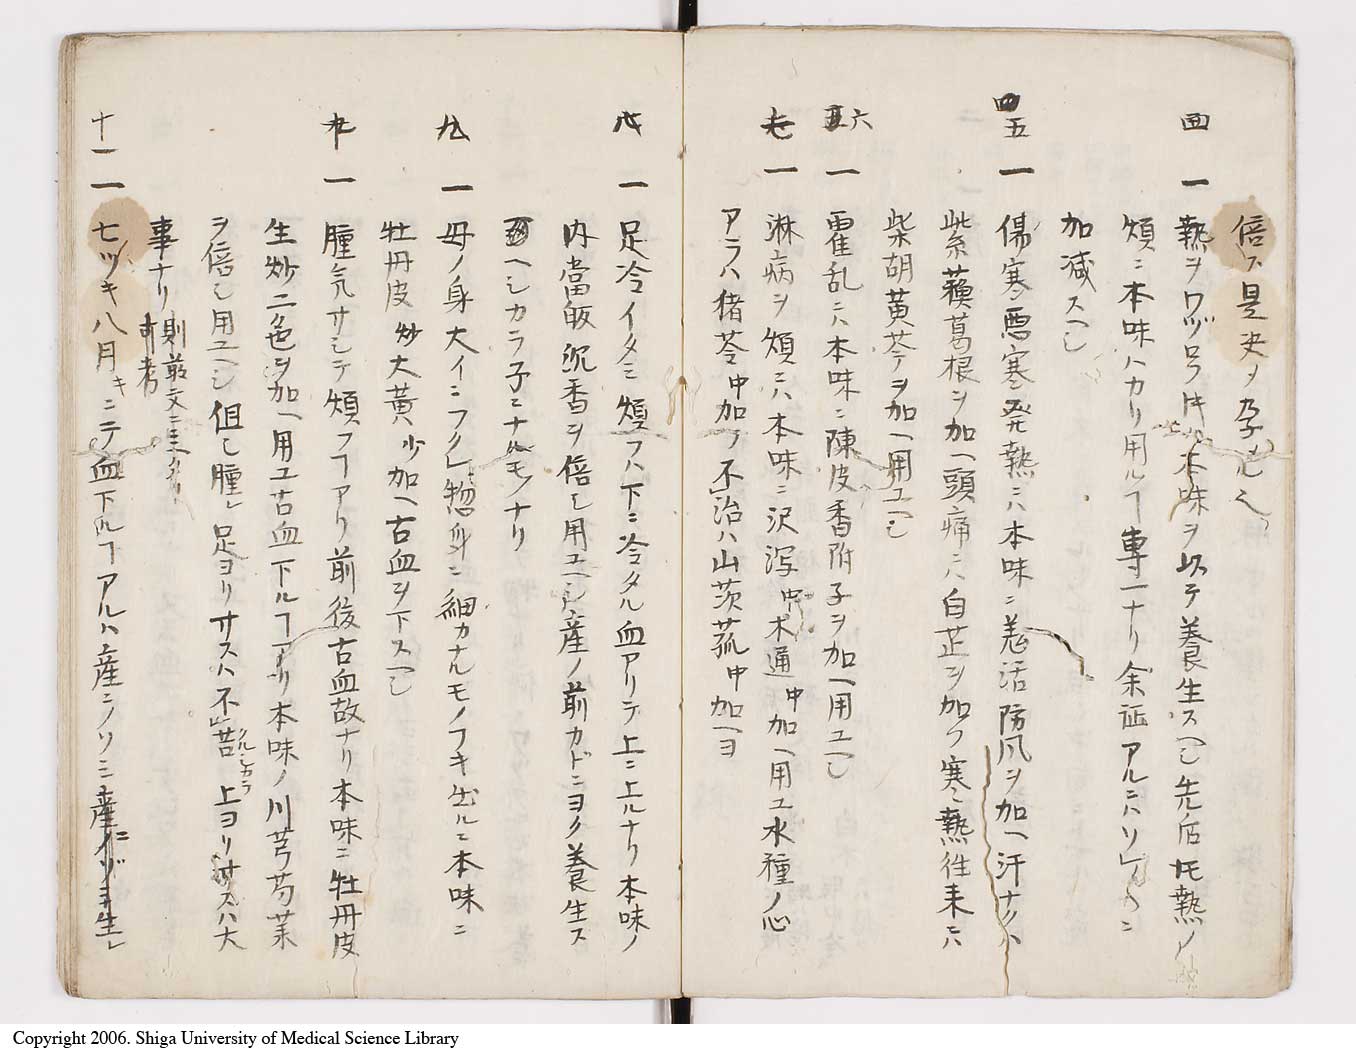 倍ス是夾ヲ孕
四 一 熱ヲワヅロフ片ハ本味ヲ以テ養生スヘシ先后 熱ノ
煩ニ本味ハカリ用ルヿ専一ナリ余証アルニハソレ〱ニ
加減スヘシ
五 一 傷寒悪寒発熱ニハ本味ニ羗活防风ヲ加ヘ汗ナクハ
紫蘓葛根ヲ加ヘ頭痛ニハ白芷ヲ加フ寒熱徃来ニハ
柴胡黄芩ヲ加ヘ用ユヘシ
六 一 霍乱ニハ本味ニ陳皮香附子ヲ加ヘ用ユヘシ
七 一 淋病ヲ煩ニハ本味ニ沢瀉中木通中加ヘ用ユ水種ノ心
アラハ猪苓中加フ不治ハ山茨菰中加ヘヨ
八 一 足冷イタミ煩フハ下ニ冷タル血アリテ上ニ上ルナリ本味ノ
内當皈沉香ヲ倍シ用ユヘシ産ノ前カドニヨク養生ス
ヘシカラ子ニナルモノナリ
九 一 母ノ身大イニフクレ惣身ニ細カナルモノフキ出ルニ本味ニ
牡丹皮炒大黄少加ヘ古血ヲ下スヘシ
十 一 腫気サシテ煩フヿアリ前後古血故ナリ本味ニ牡丹皮
生炒二色ヲ加ヘ用ユ古血下ルヿアリ本味ノ川芎芍薬
ヲ倍シ用ユヘシ但し腫レ足ヨリサスハ不苦クルシカラ上ヨリサスハ大
事ナリ則前文ニ
可考
十一 一 七ツキ八月キニテ血下ルヿアルハ産ニノソミ産